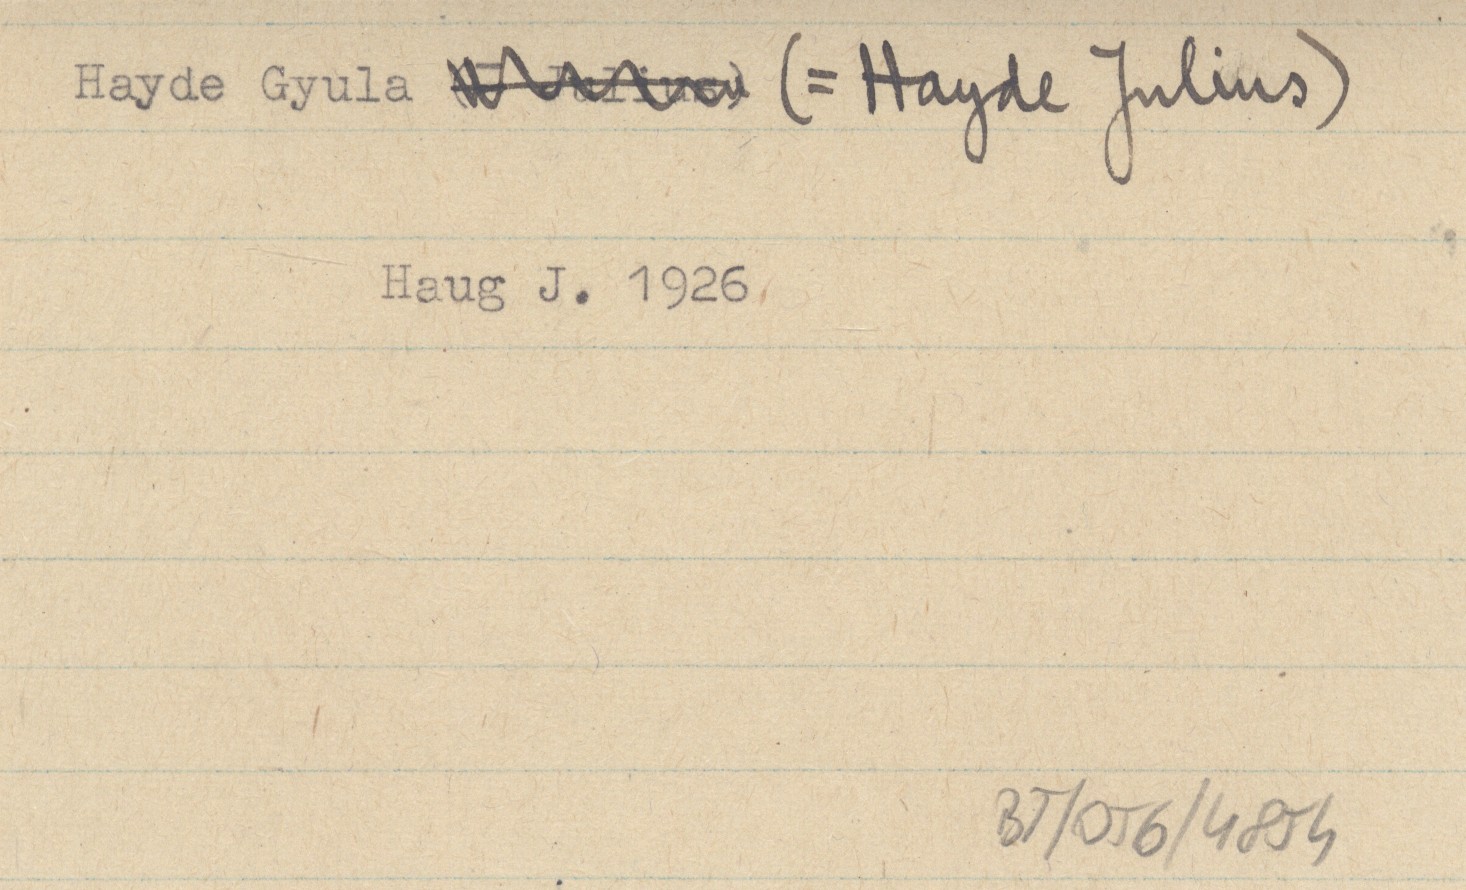 Hayde Gyula (= Hayde Julius)
Haug J. 1926
BJ/OJ6/4854